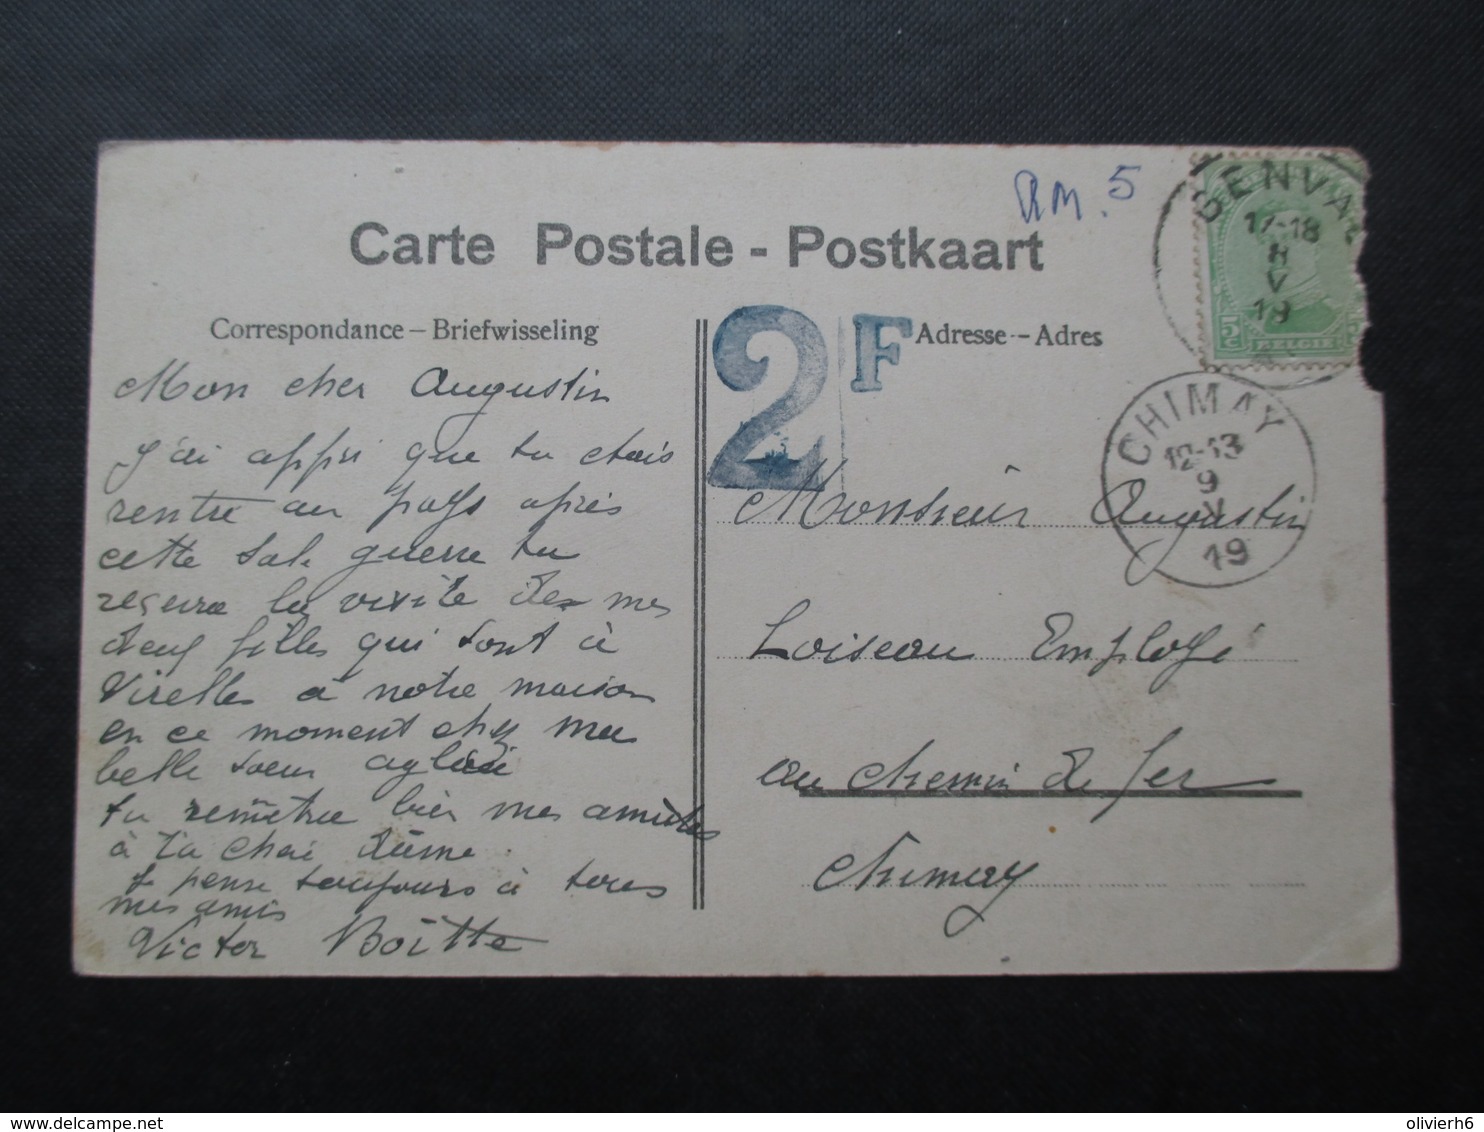 RM. 5
GENVAL
17-18
8
V
19
5c
BELGIE
Carte Postale - Postkaart
Correspondance – Briefwisseling
2F
Adresse -- Adres
CHIMAY
12-13
9
V
19
Mon cher Augustin
J'ai appri que tu etais
rentré au pays après
cette sale guerre tu
recevra la visite de mes
deux filles qui sont à
Virelles à notre maison
en ce moment chez ma
belle sœur
tu remettra bien mes amitiés
à ta chère dame.
Je pense toujours à tous
mes amis
Victor Boitte
Monsieur Augustin
Loiseau Employé
au chemin de fer
Chimay
olivierh6